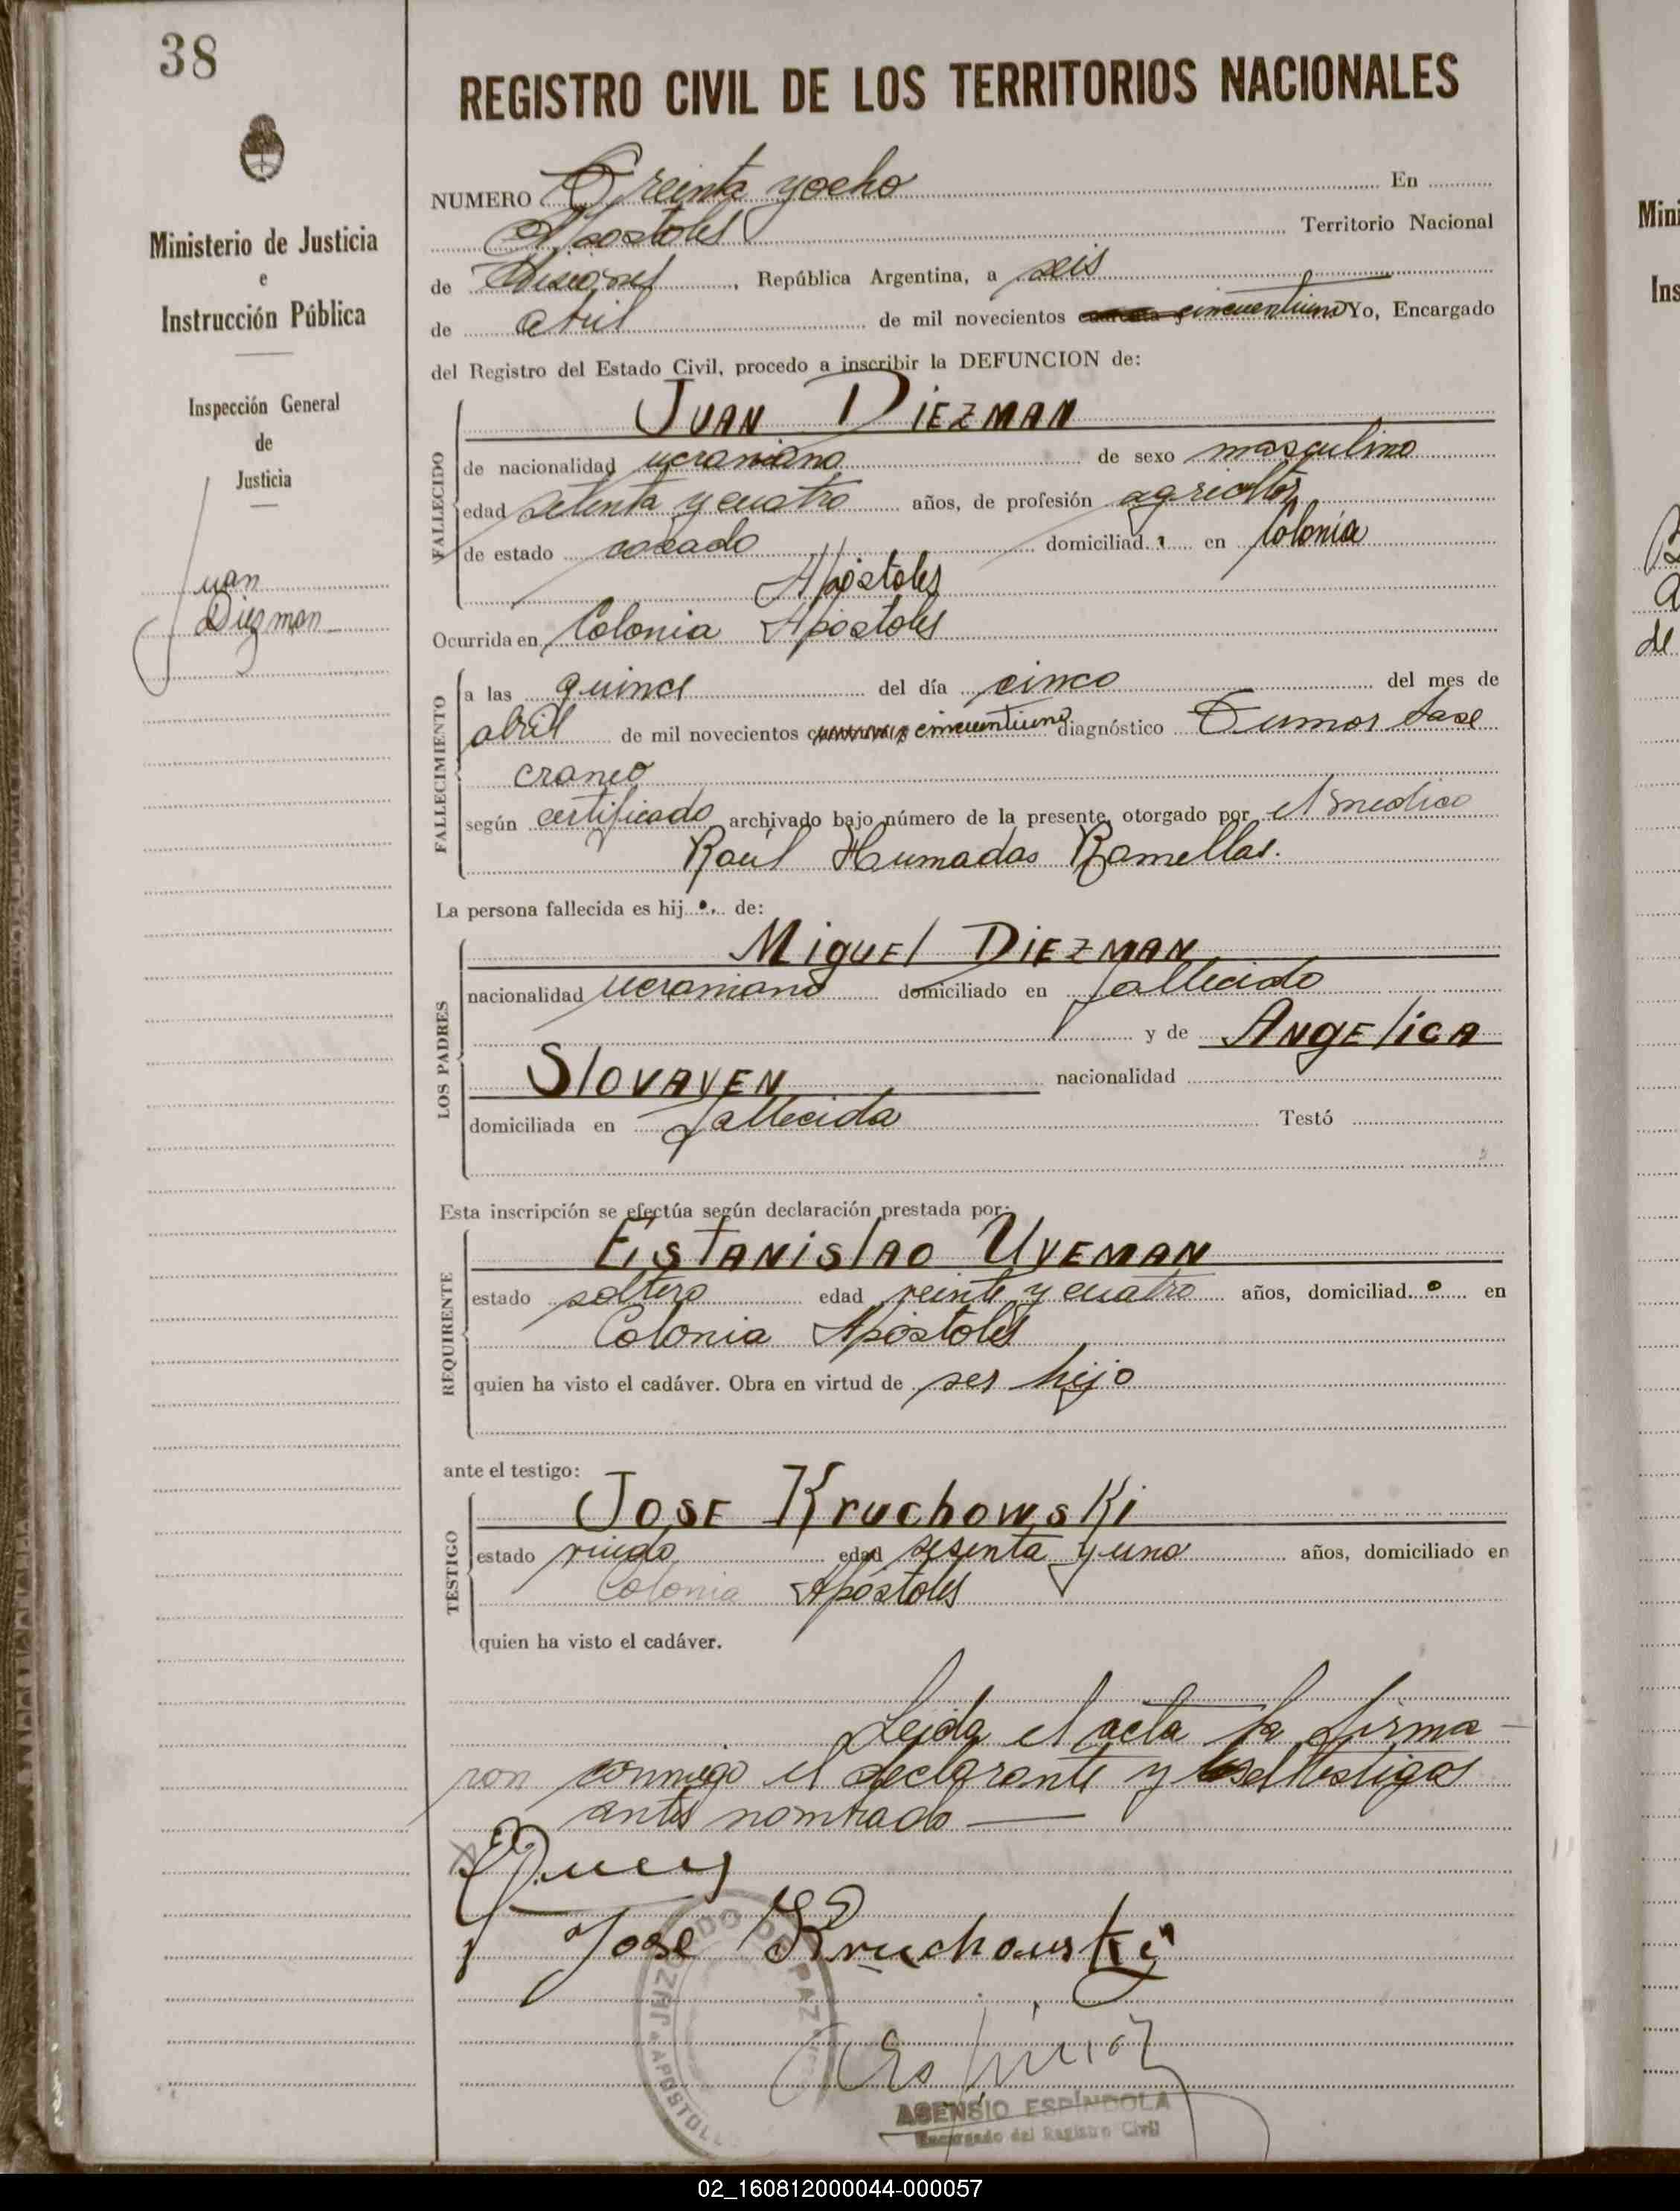 38
REGISTRO CIVIL DE LOS TERRITORIOS NACIONALES
Ministerio de Justicia
e
Instrucción Pública
Inspección General
de
Justicia
Juan
Diezman
NUMERO Treinta y ocho En
Apóstoles Territorio Nacional
de Misiones, República Argentina, a seis
de abril de mil novecientos cincuentiuno Yo, Encargado
del Registro del Estado Civil, procedo a inscribir la DEFUNCION de:
FALLECIDO
JUAN DIEZMAN
de nacionalidad ucraniano de sexo masculino
edad setenta y cuatro años, de profesión agricultor
de estado casado domiciliad en Colonia
Apóstoles
Ocurrida en Colonia Apóstoles
FALLECIMIENTO
a las quince del día cinco del mes de
abril de mil novecientos cincuentiuno diagnóstico Tumor base
craneo
según certificado archivado bajo número de la presente, otorgado por el medico
Raúl Humadas Ramellas.
La persona fallecida es hijo de:
LOS PADRES
MIGUEL DIEZMAN
nacionalidad ucraniano domiciliado en fallecido
y de ANGELICA
SLOVAVEN nacionalidad
domiciliada en fallecida Testó
Esta inscripción se efectúa según declaración prestada por:
REQUIRENTE
ESTANISLAO UVEMAN
estado soltero edad veinte y cuatro años, domiciliado en
Colonia Apóstoles
quien ha visto el cadáver. Obra en virtud de ser hijo
ante el testigo:
TESTIGO
JOSE KruchowsKi
estado viudo edad sesenta y uno años, domiciliado en
Colonia Apóstoles
quien ha visto el cadáver.
Leida el acta la firma-
ron conmigo el declarante y el testigos
antes nombrado
José Kruchowski
JUZGADO DE PAZ
APOSTOL
ASENSIO ESPÍNDOLA
Encargado del Registro Civil
02_160812000044-000057